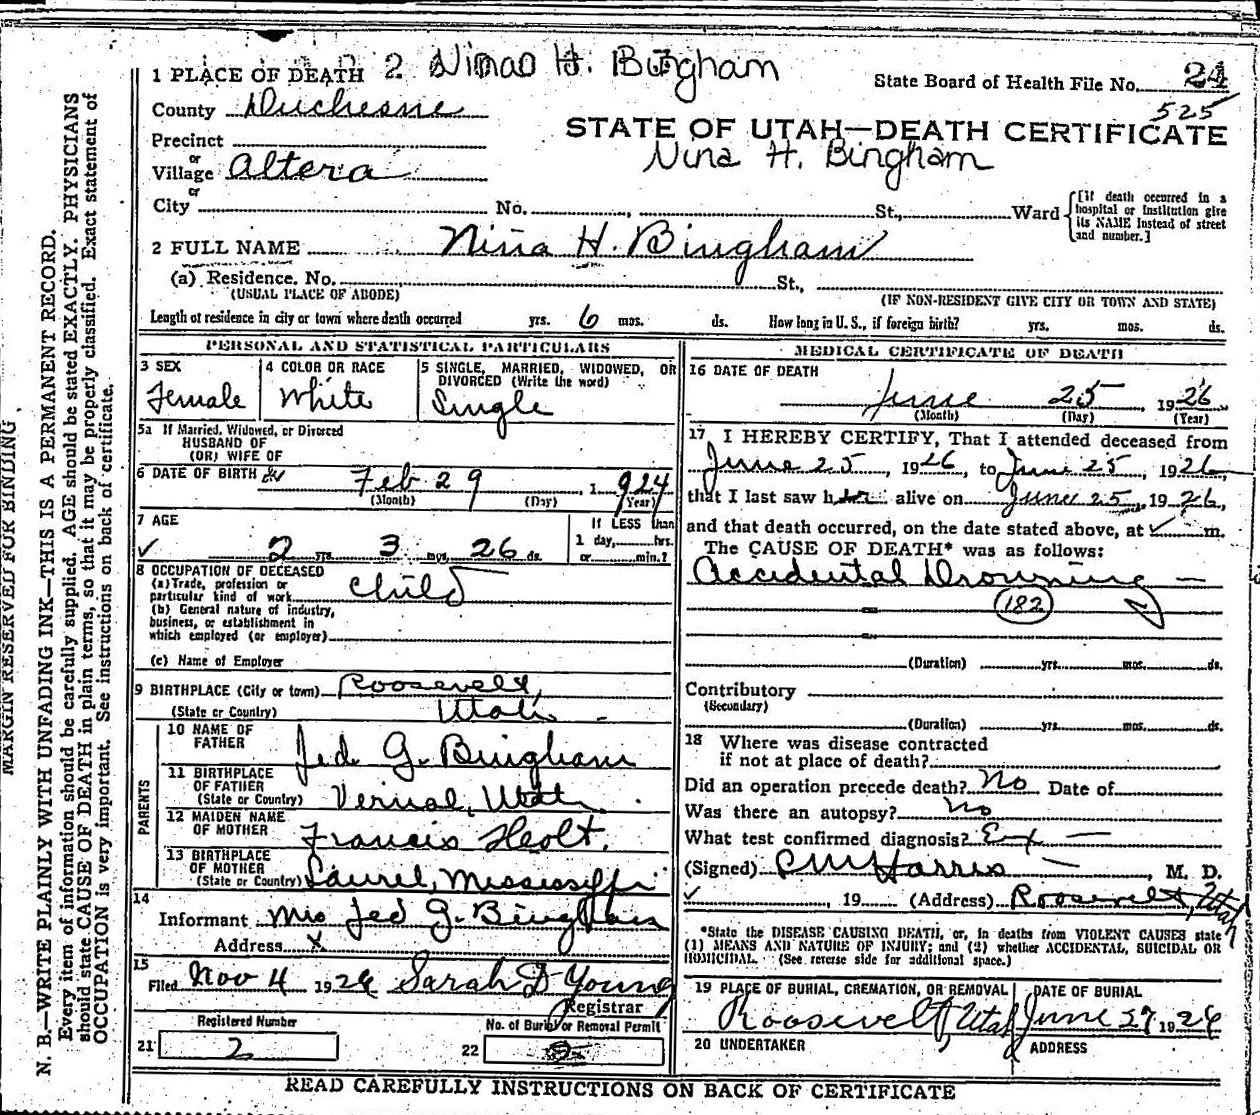 1 PLACE OF DEATH 2 Nina H. Bingham
State Board of Health File No. 24
525
County Duchesne
STATE OF UTAH—DEATH CERTIFICATE
Precinct
Nina H. Bingham
or
Village Altera
or
City No. , St., Ward
[If death occurred in a
hospital or institution give
its NAME instead of street
and number.]
2 FULL NAME Nina H. Bingham
(a) Residence. No. St.,
(USUAL PLACE OF ABODE) (IF NON-RESIDENT GIVE CITY OR TOWN AND STATE)
Length of residence in city or town where death occurred yrs. 6 mos. ds. How long in U. S., if foreign birth? yrs. mos. ds.
PERSONAL AND STATISTICAL PARTICULARS
3 SEX 4 COLOR OR RACE 5 SINGLE, MARRIED, WIDOWED, OR
DIVORCED (Write the word)
Female White Single
5a If Married, Widowed, or Divorced
HUSBAND OF
(OR) WIFE OF
6 DATE OF BIRTH Feb 29, 1924
(Month) (Day) (Year)
7 AGE If LESS than
2 yrs. 3 mos. 26 ds. 1 day, hrs.
or min.?
8 OCCUPATION OF DECEASED
(a) Trade, profession or
particular kind of work child
(b) General nature of industry,
business, or establishment in
which employed (or employer)
(c) Name of Employer
9 BIRTHPLACE (City or town) Roosevelt,
(State or Country) Utah
PARENTS
10 NAME OF
FATHER Jed. G. Bingham
11 BIRTHPLACE
OF FATHER
(State or Country) Vernal, Utah
12 MAIDEN NAME
OF MOTHER Francis Heolt.
13 BIRTHPLACE
OF MOTHER
(State or Country) Laurel, Mississippi
14
Informant Mrs Jed G. Bingham
Address X
15
Filed Nov 4 1926 Sarah D Young
Registrar
Registered Number No. of Burial or Removal Permit
21 2 22
MEDICAL CERTIFICATE OF DEATH
16 DATE OF DEATH
June 25, 1926
(Month) (Day) (Year)
17 I HEREBY CERTIFY, That I attended deceased from
June 25, 1926, to June 25, 1926
that I last saw her alive on June 25, 1926,
and that death occurred, on the date stated above, at ✓ m.
The CAUSE OF DEATH* was as follows:
Accidental Drowning —
182
(Duration) yrs. mos. ds.
Contributory
(Secondary)
(Duration) yrs. mos. ds.
18 Where was disease contracted
if not at place of death?
Did an operation precede death? No Date of
Was there an autopsy? No
What test confirmed diagnosis? Ex —
(Signed) Harris —, M. D.
✓, 19 (Address) Roosevelt, Utah
*State the DISEASE CAUSING DEATH, or, in deaths from VIOLENT CAUSES state
(1) MEANS AND NATURE OF INJURY; and (2) whether ACCIDENTAL, SUICIDAL OR
HOMICIDAL. (See reverse side for additional space.)
19 PLACE OF BURIAL, CREMATION, OR REMOVAL DATE OF BURIAL
Roosevelt, Utah June 27 1926
20 UNDERTAKER ADDRESS
READ CAREFULLY INSTRUCTIONS ON BACK OF CERTIFICATE
MARGIN RESERVED FOR BINDING
N. B.—WRITE PLAINLY WITH UNFADING INK—THIS IS A PERMANENT RECORD.
Every item of information should be carefully supplied. AGE should be stated EXACTLY. PHYSICIANS
should state CAUSE OF DEATH in plain terms, so that it may be properly classified. Exact statement of
OCCUPATION is very important. See instructions on back of certificate.